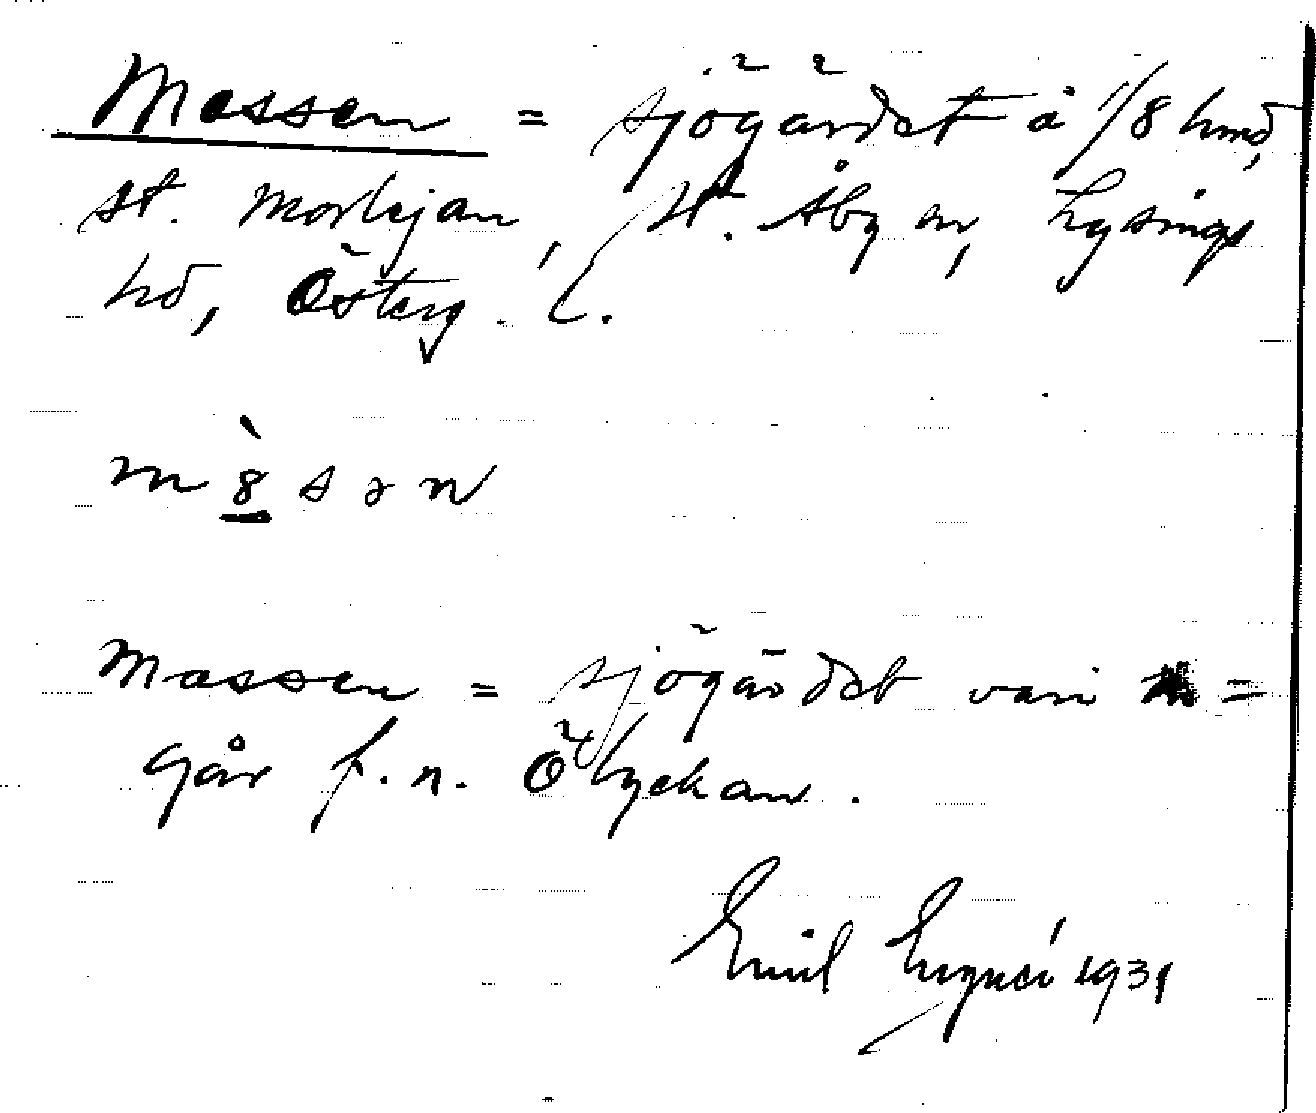 Massen = sjögärdet å 1/8 hmd,
St. Morkejan, St. Åby sn, Lysings
hd, Österg. L.
m8̀sən
Massen = sjögärdet vari =
går f.n. Ölyckan.
Emil 1931